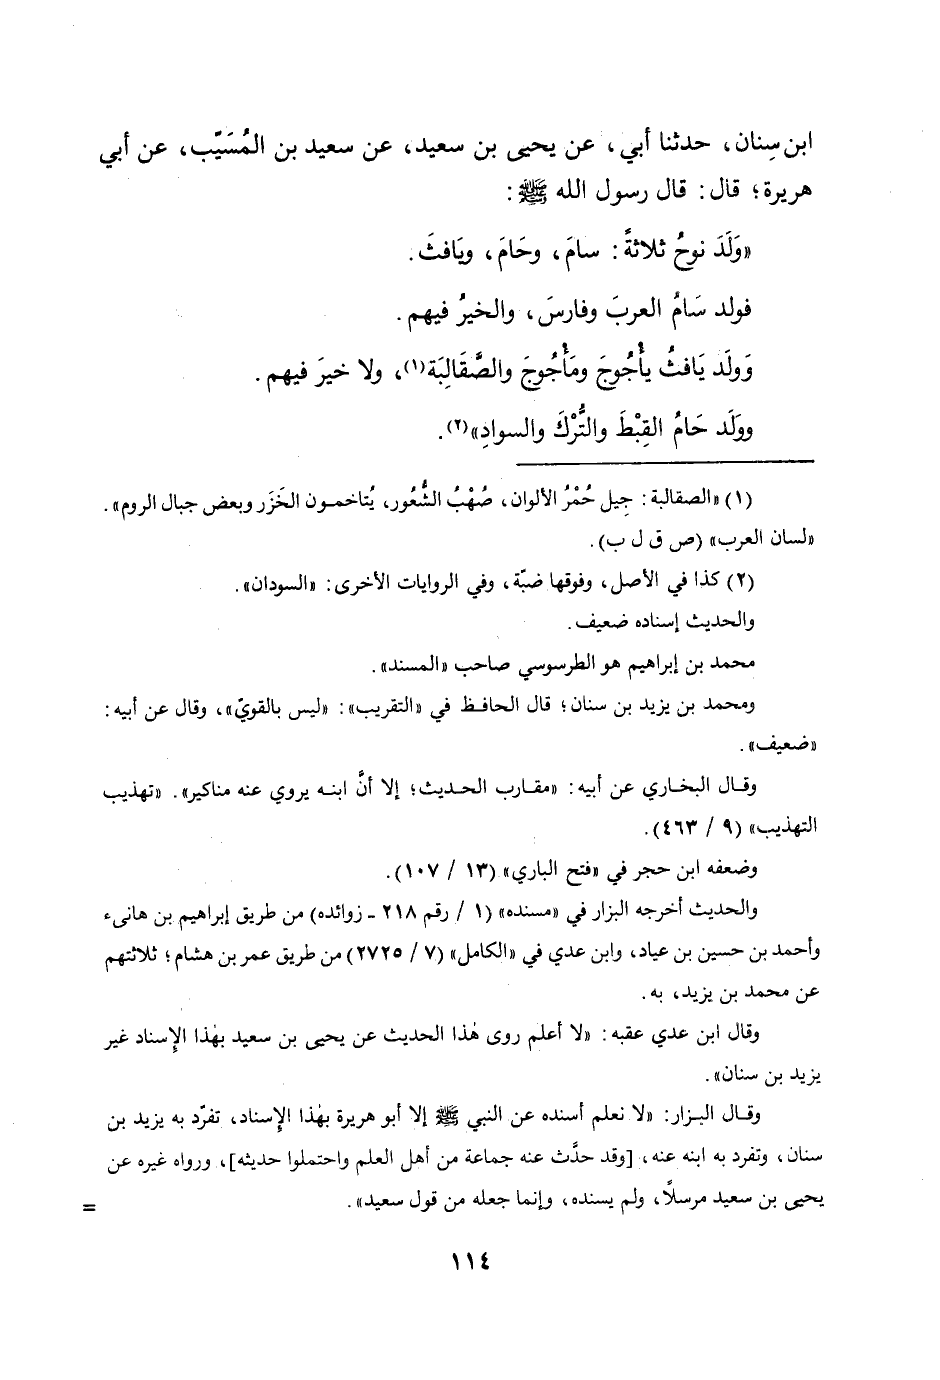 ابن سِنان، حدثنا أبي، عن يحيى بن سعيد، عن سعيد بن المُسَيّب، عن أبي
هريرة؛ قال: قال رسول الله ﷺ:
«وَلَدَ نوحُ ثلاثةً: سامَ، وحَامَ، ويَافثَ.
فولد سَامُ العربَ وفارسَ، والخيرُ فيهم.
وَولَد يَافثُ يأْجُوجَ ومَأْجُوجَ والصَّقَالِبَة(١)، ولا خيرَ فيهم.
وولَد حَامُ القِبْطَ والتُّرْكَ والسوادِ»(٢).
(١) «الصقالبة: جِيل حُمْرُ الألوان، صُهْبُ الشُّعُور، يُتاخمون الخَزَر وبعض جبال الروم».
«لسان العرب» (ص ق ل ب).
(٢) كذا في الأصل، وفوقها ضبّة، وفي الروايات الأخرى: «السودان».
والحديث إسناده ضعيف.
محمد بن إبراهيم هو الطرسوسي صاحب «المسند».
ومحمد بن يزيد بن سنان؛ قال الحافظ في «التقريب»: «ليس بالقويّ»، وقال عن أبيه:
«ضعيف».
وقال البخاري عن أبيه: «مقارب الحديث؛ إلا أنَّ ابنه يروي عنه مناكير». «تهذيب
التهذيب» (٩ / ٤٦٣).
وضعفه ابن حجر في «فتح الباري» (١٣ / ١٠٧).
والحديث أخرجه البزار في «مسنده» (١ / رقم ٢١٨ ـ زوائده) من طريق إبراهيم بن هانىء
وأحمد بن حسين بن عباد، وابن عدي في «الكامل» (٧ / ٢٧٢٥) من طريق عمر بن هشام؛ ثلاثتهم
عن محمد بن يزيد، به.
وقال ابن عدي عقبه: «لا أعلم روى هٰذا الحديث عن يحيى بن سعيد بهٰذا الإسناد غير
يزيد بن سنان».
وقال البزار: «لا نعلم أسنده عن النبي ﷺ إلا أبو هريرة بهٰذا الإسناد، تفرّد به يزيد بن
سنان، وتفرد به ابنه عنه، [وقد حدَّث عنه جماعة من أهل العلم واحتملوا حديثه]، ورواه غيره عن
يحيى بن سعيد مرسلًا، ولم يسنده، وإنما جعله من قول سعيد».
=
١١٤